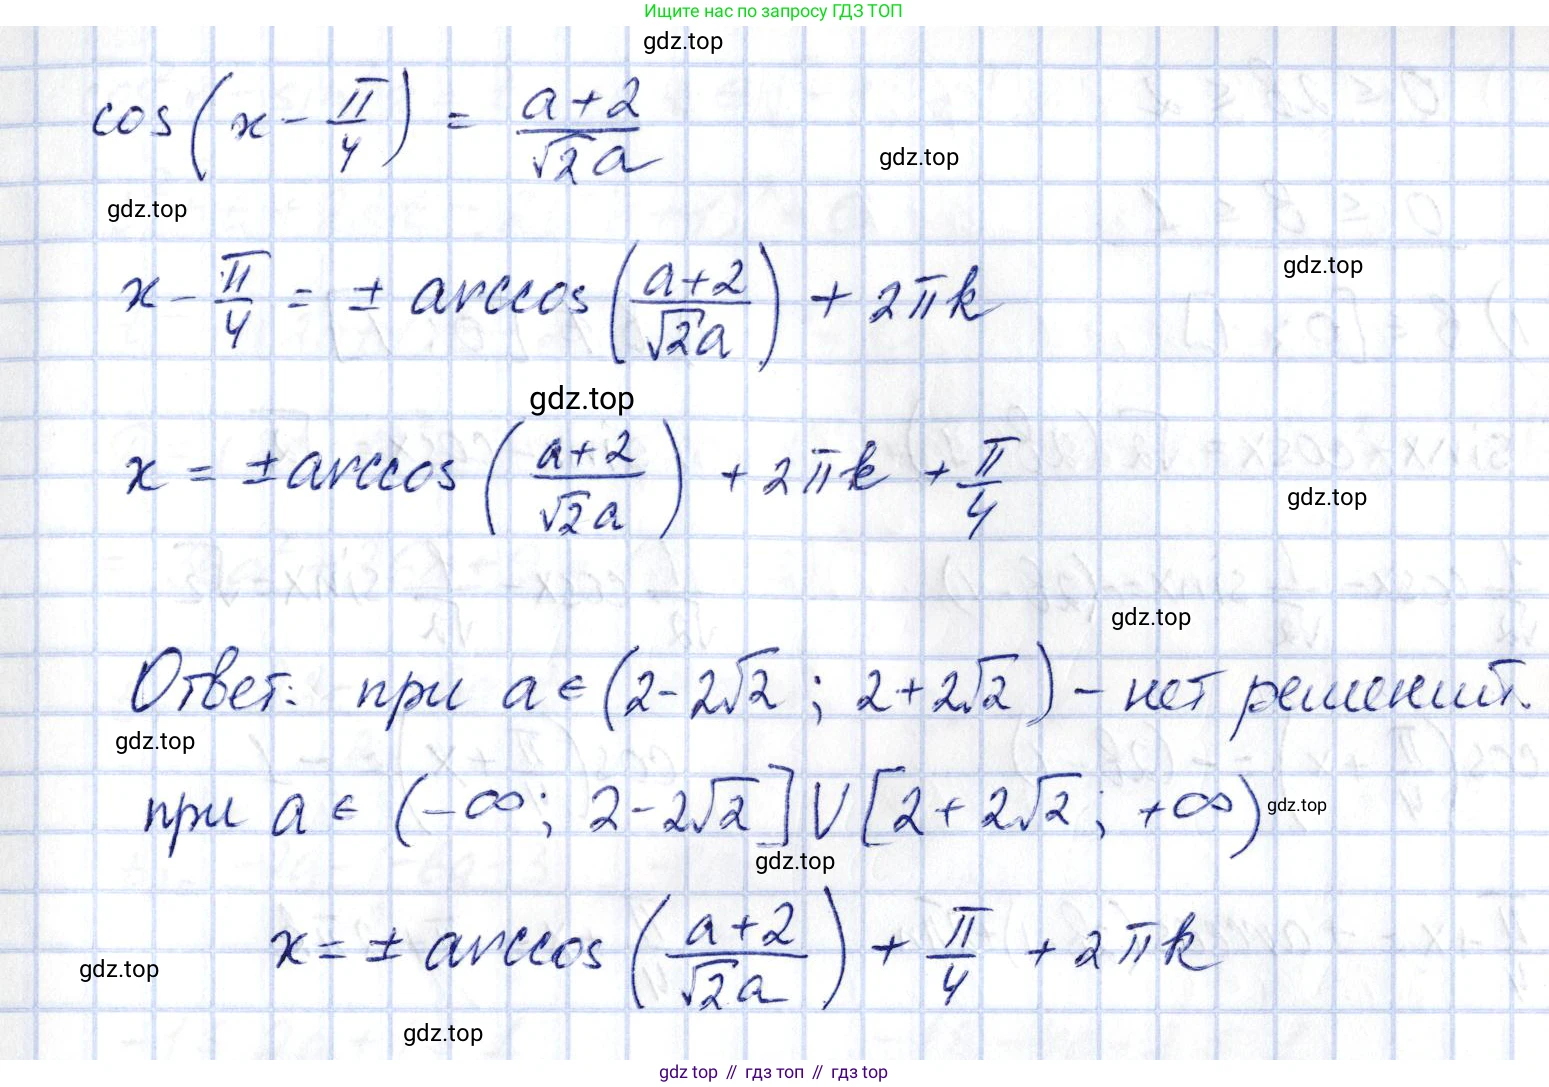 Ищите нас по запросу ГДЗ ТОП
gdz.top
cos(x - π/4) = (a+2)/(√2a)
gdz.top
gdz.top
x - π/4 = ± arccos((a+2)/(√2a)) + 2πk
gdz.top
gdz.top
x = ± arccos((a+2)/(√2a)) + 2πk + π/4
gdz.top
gdz.top
Ответ: при a ∈ (2-2√2 ; 2+2√2) - нет решений.
gdz.top
при a ∈ (-∞; 2-2√2] ∪ [2+2√2; +∞)
gdz.top
gdz.top
x = ± arccos((a+2)/(√2a)) + π/4 + 2πk
gdz.top
gdz.top
gdz.top // гдз топ // гдз top